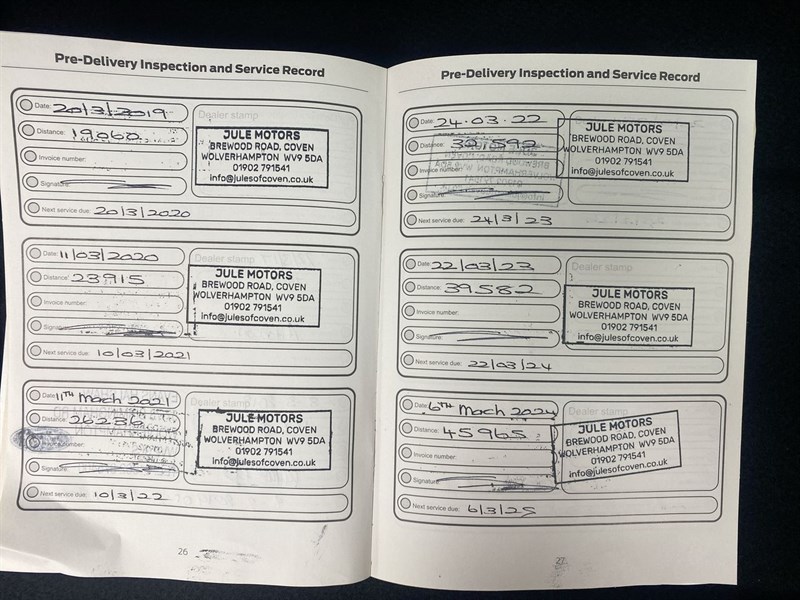 Pre-Delivery Inspection and Service Record
Date: 20/3/2019
Distance: 19060
Invoice number:
Signature:
Next service due: 20/3/2020
Dealer stamp
JULE MOTORS
BREWOOD ROAD, COVEN
WOLVERHAMPTON WV9 5DA
01902 791541
info@julesofcoven.co.uk
Date: 11/03/2020
Distance: 23915
Invoice number:
Signature:
Next service due: 10/03/2021
Dealer stamp
JULE MOTORS
BREWOOD ROAD, COVEN
WOLVERHAMPTON WV9 5DA
01902 791541
info@julesofcoven.co.uk
Date: 11TH Mach 2021
Distance: 26236
number:
Signature:
Next service due: 10/3/22
Dealer stamp
JULE MOTORS
BREWOOD ROAD, COVEN
WOLVERHAMPTON WV9 5DA
01902 791541
info@julesofcoven.co.uk
26
Pre-Delivery Inspection and Service Record
Date: 24.03.22
Distance: 30,592
Invoice number:
Signature:
Next service due: 24/3/23
JULE MOTORS
BREWOOD ROAD, COVEN
WOLVERHAMPTON WV9 5DA
01902 791541
info@julesofcoven.co.uk
Date: 22/03/23
Distance: 39582
Invoice number:
Signature:
Next service due: 22/03/24
Dealer stamp
JULE MOTORS
BREWOOD ROAD, COVEN
WOLVERHAMPTON WV9 5DA
01902 791541
info@julesofcoven.co.uk
Date: 6TH Mach 2024
Distance: 45965
Invoice number:
Signature:
Next service due: 6/3/25
Dealer stamp
JULE MOTORS
BREWOOD ROAD, COVEN
WOLVERHAMPTON WV9 5DA
01902 791541
info@julesofcoven.co.uk
27